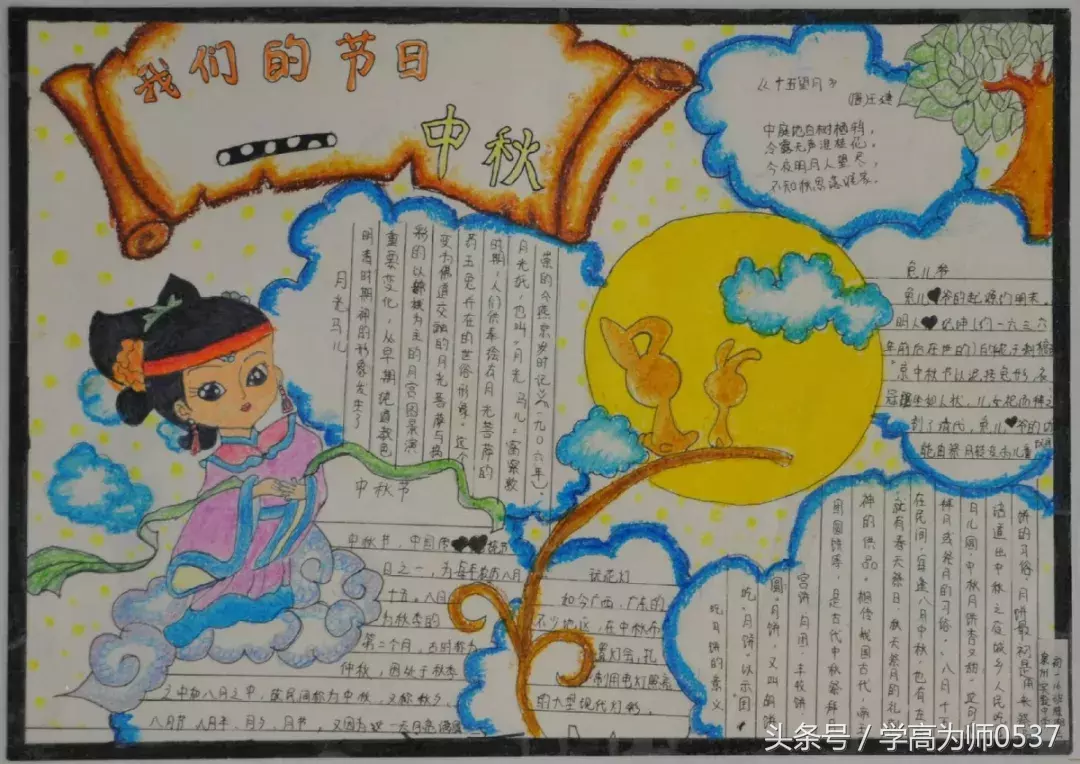 我们的节日
中秋
《十五望月》
(唐)王建
中庭地白树栖鸦，
冷露无声湿桂花。
今夜明月人望尽，
不知秋思落谁家。
月光马儿
明清时期神的形象发生了
重要变化，从早期纯道教色
彩的以嫦娥为主的月宫图景演
变为佛道交融的月光菩萨与捣
药玉兔并在的世俗形象。这个
时期，人们供奉绘在月光菩萨的
月光纸，也叫"月光马儿"富察敦
崇的《燕京岁时记》(一九〇六年)，
兔儿爷
兔儿爷的起源约明末。
明人纪坤(约一六三六
年前后在世的)的
京中秋节以泥抟兔形，衣
冠踞坐如人状，儿女祀而拜之
到了清代，兔儿爷的功
能由祭月转变为儿童
中秋节
中秋节，中国传统节
日之一，为每年农历八月
十五。八月
为秋季的
第二个月，古时称为
仲秋，因处于秋季
之中和八月之中，故民间称为中秋，又称秋夕，
八月节，八月半，月夕，月节，
玩花灯
和今广西，广东的
不少地区，在中秋布
置灯会，扎
制用电灯照亮
的大型现代灯彩，
吃月饼的意义
吃"月饼"以示"团
圆"月饼，又叫胡饼
宫饼月团、丰收饼
团圆饼等，是古代中秋祭拜月
神的供品。相传我国古代，帝王
就有春天祭日、秋天祭月的礼
在民间，每逢八月中秋，也有左
拜月或祭月的习俗。"八月十五
月儿圆，中秋月饼香又甜"，这句
话道出中秋之夜城乡人民吃
饼的习俗，月饼最初是用来祭
头条号 / 学高为师0537